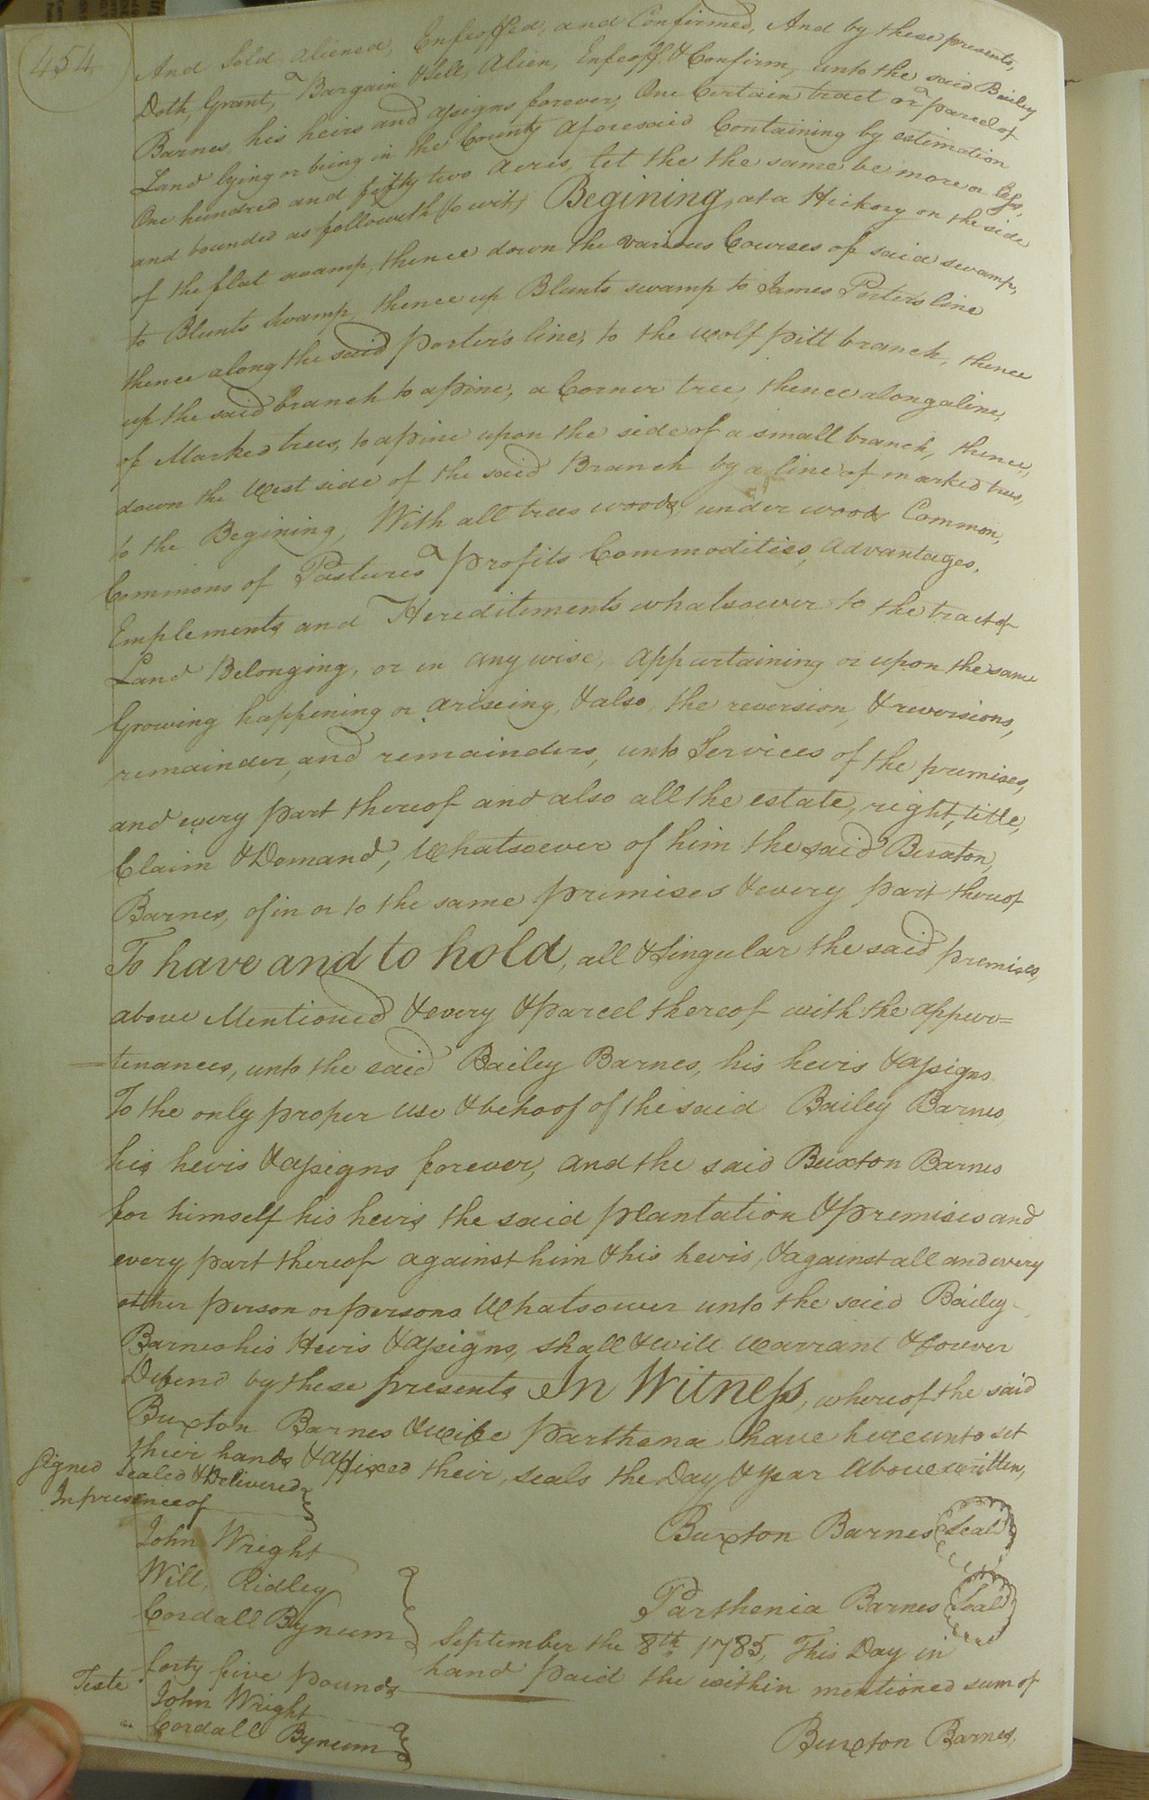 454
And Sold, aliened, Enfeoffed, and Confirmed, And by these presents,
Doth, Grant, Bargain & Sell, Alien, Enfeoff & Confirm, unto the said Bailey
Barnes, his heirs and assigns forever, One Certain tract or parcel of
Land lying or being in the County aforesaid Containing by estimation
One hundred and fifty two acres, let the the same be more or less,
and bounded as followeth (to wit) Begining, at a Hickory on the side
of the flat swamp, thence down the various Courses of said swamp,
to Blunts Swamp, thence up Blunts swamp to James Porters line
thence along the said Porter's line, to the wolf pitt branch, thence
up the said branch to a pine, a Corner tree, thence along a line,
of Marked trees, to a pine upon the side of a small branch, thence,
down the West side of the said Branch by a line of marked trees,
to the Begining, With all trees woods under woods Common,
Commons of Pastures profits Commodities, advantages,
Emplements and Hereditements whatsoever to the tract of
Land Belonging, or in any wise, appurtaining or upon the same
Growing happening or ariseing, & also, the reversion, & reversions,
remainder, and remainders, unto Services of the premises,
and every part thereof and also all the estate, right, title,
Claim & Demand, Whatsoever of him the said Buxton,
Barnes, of in or to the same premises & every part thereof
To have and to hold, all & Singular the said premises,
above Mentioned & every & parcel thereof with the appur=
tenances, unto the said Bailey Barnes, his heirs & assigns
To the only proper use & behoof of the said Bailey Barnes
his heirs & assigns forever, and the said Buxton Barnes
for himself his heirs the said plantation & premises and
every part thereof against him & his heirs, & against all and every
other person or persons Whatsoever unto the said Bailey
Barnes his Heirs & assigns, shall & will Warrant & forever
Defend by these presents In Witness, whereof the said
Buxton Barnes & wife Parthena have hereunto set
their hands & affixed their, seals the Day & year Above written,
Signed Sealed & Delivered
In presence of
John Wright
Will, Ridley
Cordall Bynum
Buxton Barnes Seal
Parthenia Barnes Seal
September the 8th 1785, This Day in
hand paid the within mentioned sum of
forty five pounds
Teste
John Wright
Cordall Bynum
Buxton Barnes,